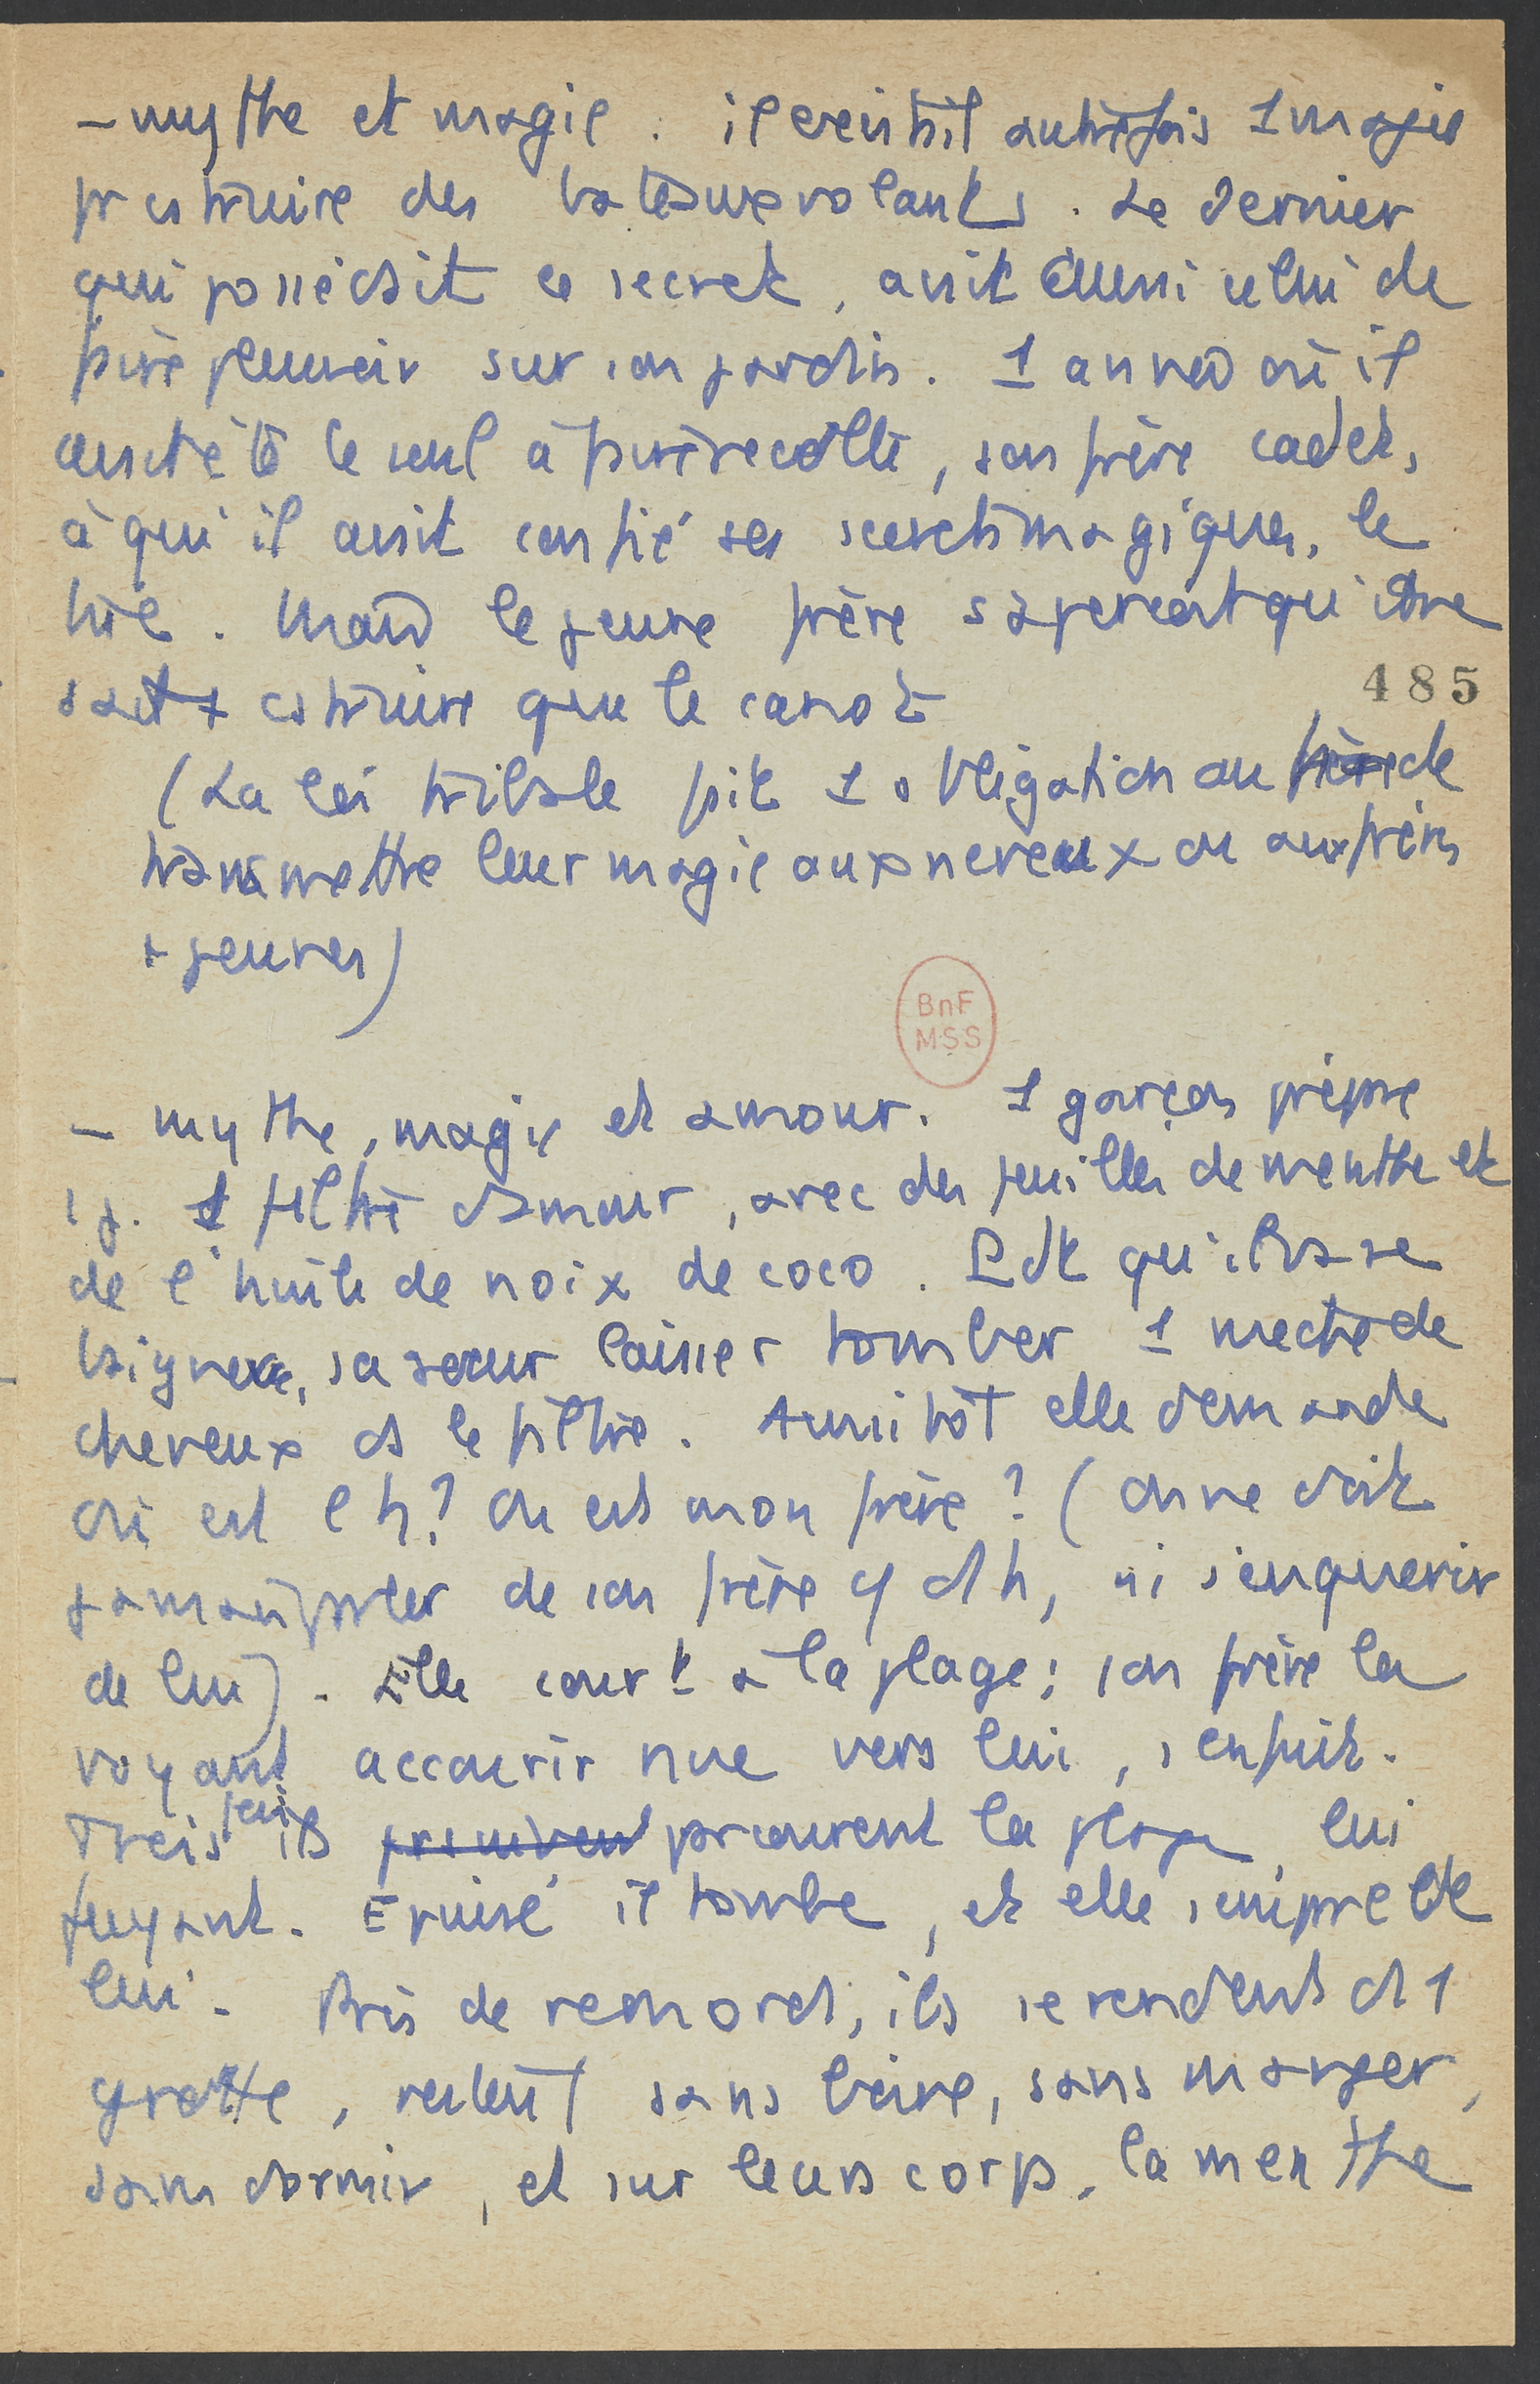 - mythe et magie. il existait autrefois 1 magie
pr cstruire des bateaux volants. Le dernier
qui possédait ce secret, avait aussi celui de
faire pleuvoir sur son jardin. 1 année où il
avait été le seul à faire récolte, son frère cadet,
à qui il avait confié ses secrets magiques, le
tue. Mais le jeune frère s'aperçoit qu'il ne
sait cstruire que le canot
485
(La loi tribale fait 1 obligation au frère de
transmettre leur magie aux neveux ou aux frères
+ jeunes)
BnF
MSS
- mythe, magie et amour. 1 garçon prépare
1 j. 1 philtre d'amour, avec des feuilles de menthe et
de l'huile de noix de coco. Pdt qu'il va se
baigner, sa soeur laisse tomber 1 mèche de
cheveux ds le philtre. Aussitôt elle demande
Où est l'h? Où est mon frère? (On ne doit
jamais parler de son frère c/ d'1 h, ni s'enquérir
de lui). Elle court à la plage; son frère la
voyant accourir nue vers lui, s'enfuit.
Trois fois ils parcourent la plage, lui
fuyant. Epuisé il tombe, et elle s'empare de
lui. Pris de remords, ils se rendent ds 1
grotte, restent sans boire, sans manger,
sans dormir, et sur leurs corps, la menthe